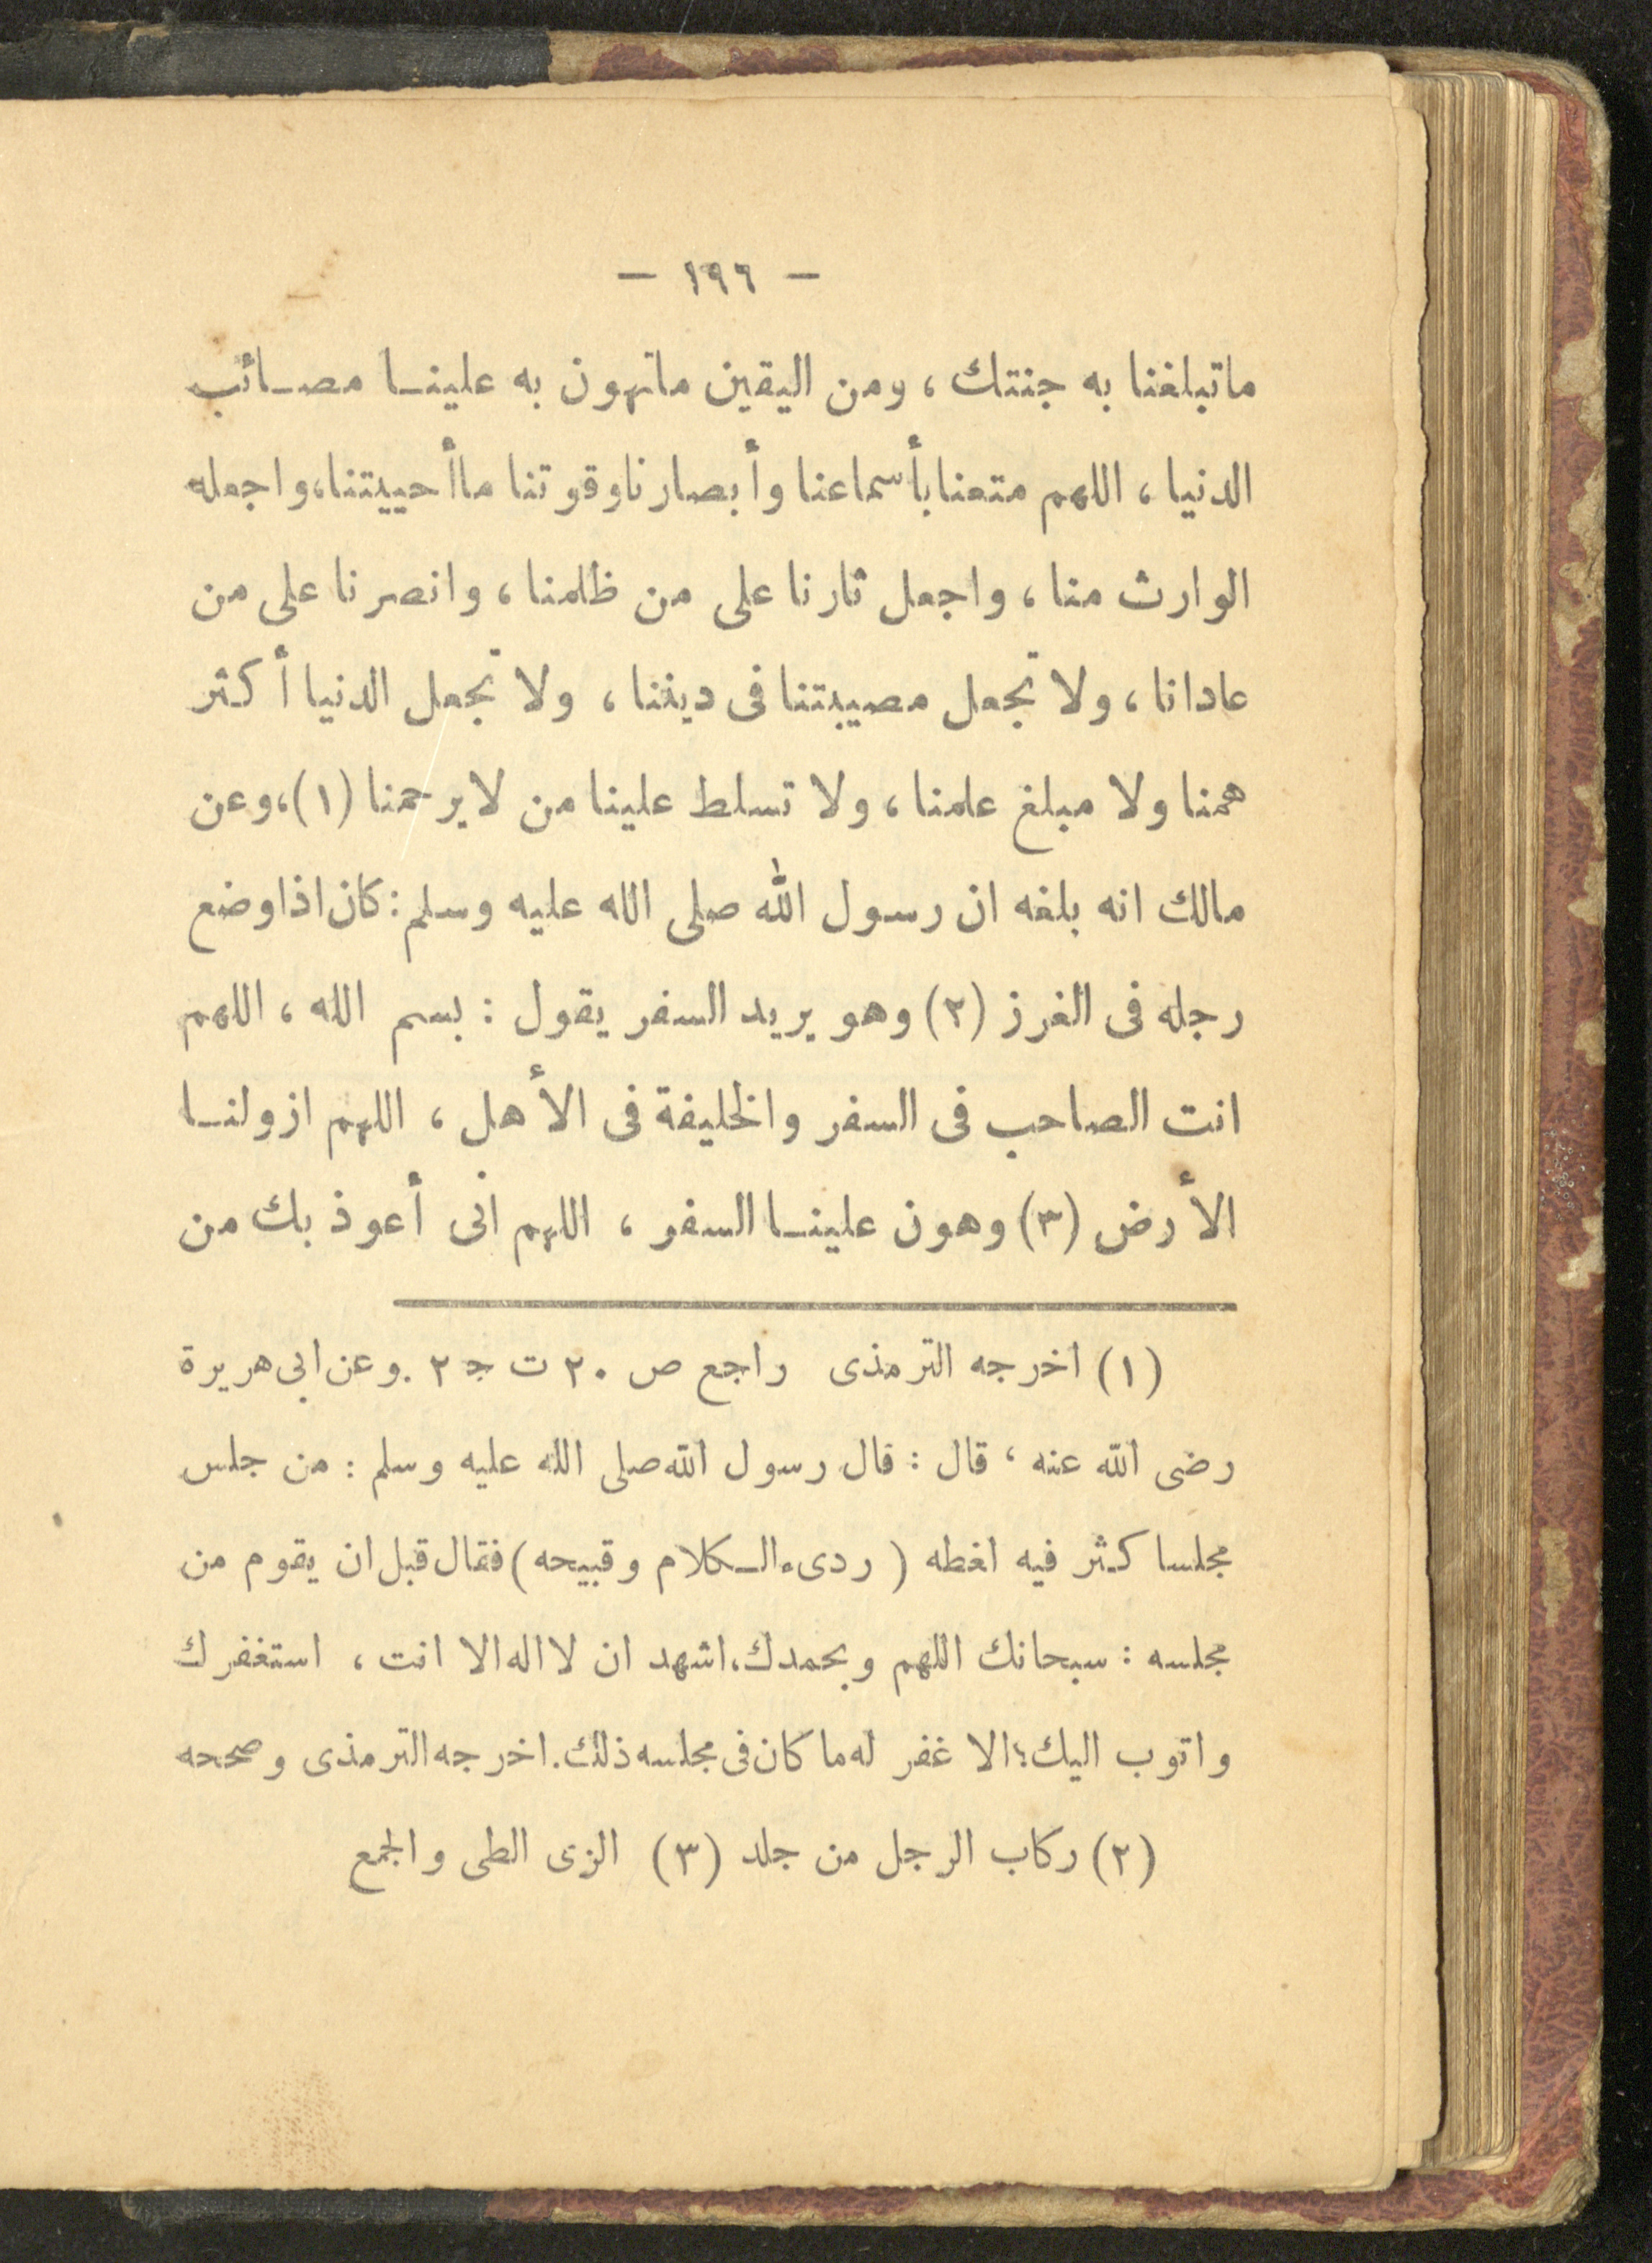 — ١٩٦ —
ماتبلغنا به جنتك ، ومن اليقين ماتهون به علينا مصائب
الدنيا ، اللهم متعنا بأسماعنا وأبصارنا وقوتنا ماأحييتنا، واجعله
الوارث منا ، واجعل ثارنا على من ظلمنا ، وانصرنا على من
عادانا ، ولا تجعل مصيبتنا فى ديننا ، ولا تجعل الدنيا أكثر
همنا ولا مبلغ علمنا ، ولا تسلط علينا من لايرحمنا (١)، وعن
مالك انه بلغه ان رسول الله صلى الله عليه وسلم : كان اذا وضع
رجله فى الغرز (٢) وهو يريد السفر يقول : بسم الله ، اللهم
انت الصاحب فى السفر والخليفة فى الأهل ، اللهم ازولنا
الأرض (٣) وهون علينا السفر ، اللهم انى أعوذ بك من
(١) اخرجه الترمذى راجع ص ٢٠ ت ج ٢ . وعن ابى هريرة
رضى الله عنه ، قال : قال رسول الله صلى الله عليه وسلم : من جلس
مجلسا كثر فيه لغطه ( ردىء الكلام وقبيحه ) فقال قبل ان يقوم من
مجلسه : سبحانك اللهم وبحمدك، اشهد ان لا اله الا انت ، استغفرك
واتوب اليك؛ الا غفر له ما كان فى مجلسه ذلك . اخرجه الترمذى وصححه
(٢) ركاب الرجل من جلد (٣) الزى الطى والجمع